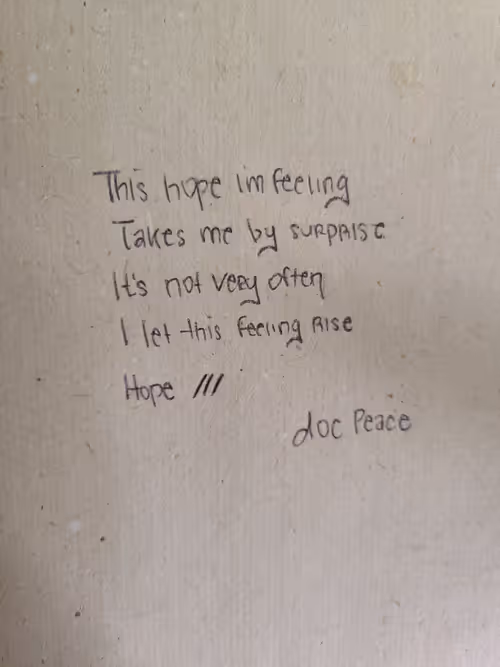 This hope im feeling
Takes me by SURPRISE
It's not very often
I let this feeling RISE
Hope ///
doc Peace